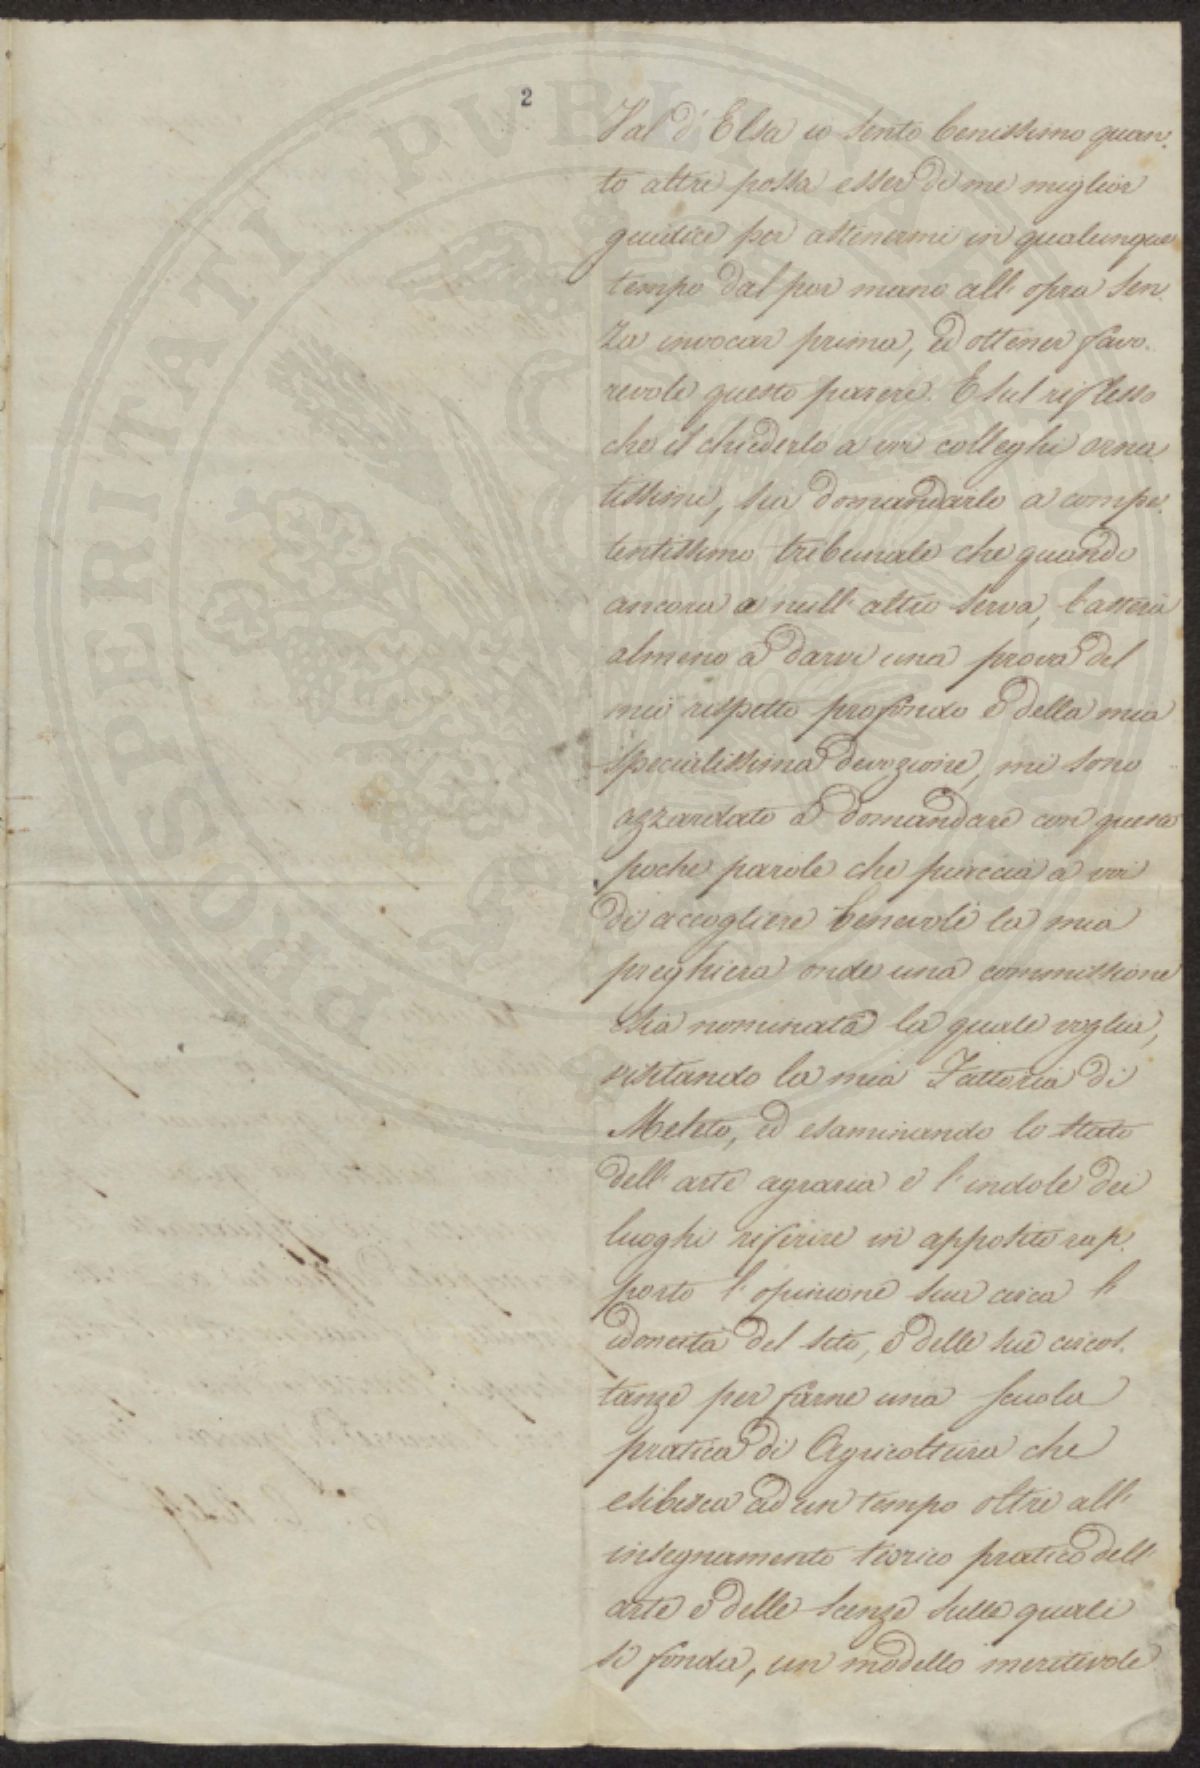 2
Val d'Elsa io sento benissimo quan-
to altri possa esser di me miglior
giudice per astenermi in qualunque
tempo dal por mano all'opra sen-
za invocar prima, ed ottener favo-
revole questo parere. E sul riflesso
che il chiederlo a voi colleghi orna-
tissimi, sia domandarlo a compe-
tentissimo tribunale che quando
ancora a null'altro serva, basterà
almeno a darvi una prova del
mio rispetto profondo e della mia
specialissima devozione, mi sono
azzardato a domandare con queste
poche parole che piaccia a voi
di accogliere benevoli la mia
preghiera onde una commissione
sia nominata la quale voglia,
visitando la mia Fattoria di
Meleto, ed esaminando lo stato
dell'arte agraria e l'indole dei
luoghi riferire in apposito rap-
porto l'opinione sua circa l'
idoneità del sito, e delle sue circos-
tanze per farne una scuola
pratica di Agricoltura che
esibisca ad un tempo oltre all'
insegnamento teorico pratico dell'
arte e delle scenze sulle quali
si fonda, un modello meritevole
PROSPERITATI PVBLICAE